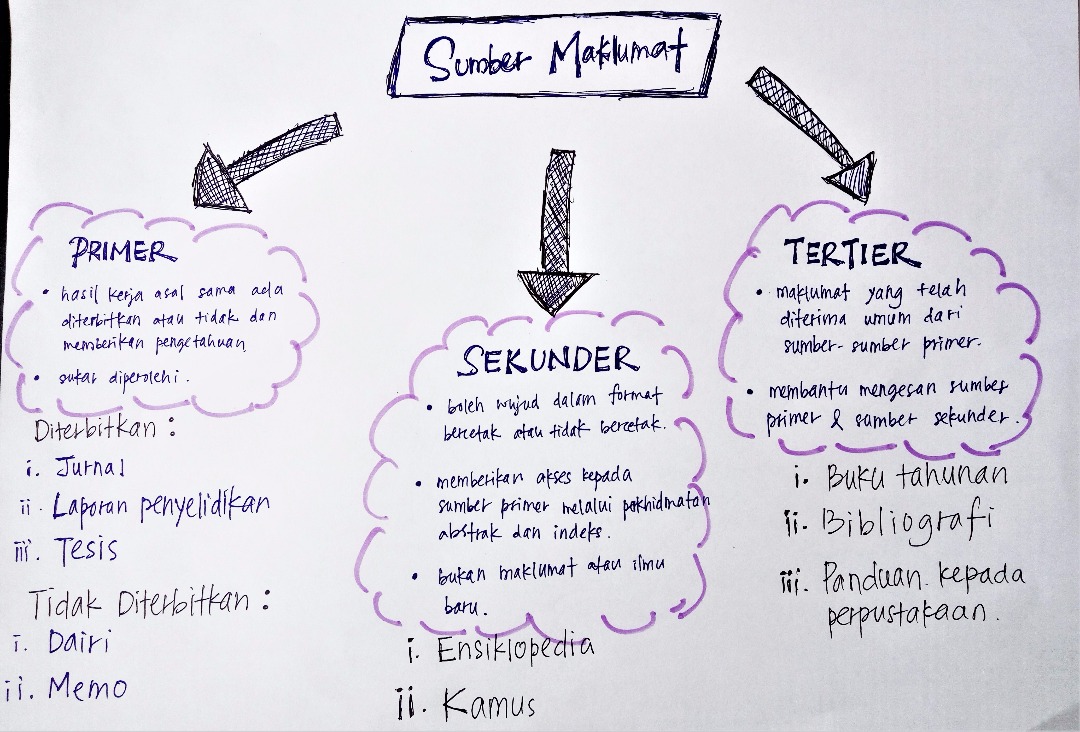 Sumber Maklumat
PRIMER
• hasil kerja asal sama ada
diterbitkan atau tidak dan
memberikan pengetahuan
• sukar diperolehi.
Diterbitkan :
i. Jurnal
ii. Laporan penyelidikan
iii. Tesis
Tidak Diterbitkan :
i. Dairi
ii. Memo
SEKUNDER
• boleh wujud dalam format
bercetak atau tidak bercetak.
• memberikan akses kepada
sumber primer melalui pekhidmatan
abstrak dan indeks.
• bukan maklumat atau ilmu
baru.
i. Ensiklopedia
ii. Kamus
TERTIER
• maklumat yang telah
diterima umum dari
sumber-sumber primer.
• membantu mengesan sumber
primer & sumber sekunder.
i. Buku tahunan
ii. Bibliografi
iii. Panduan kepada
perpustakaan.